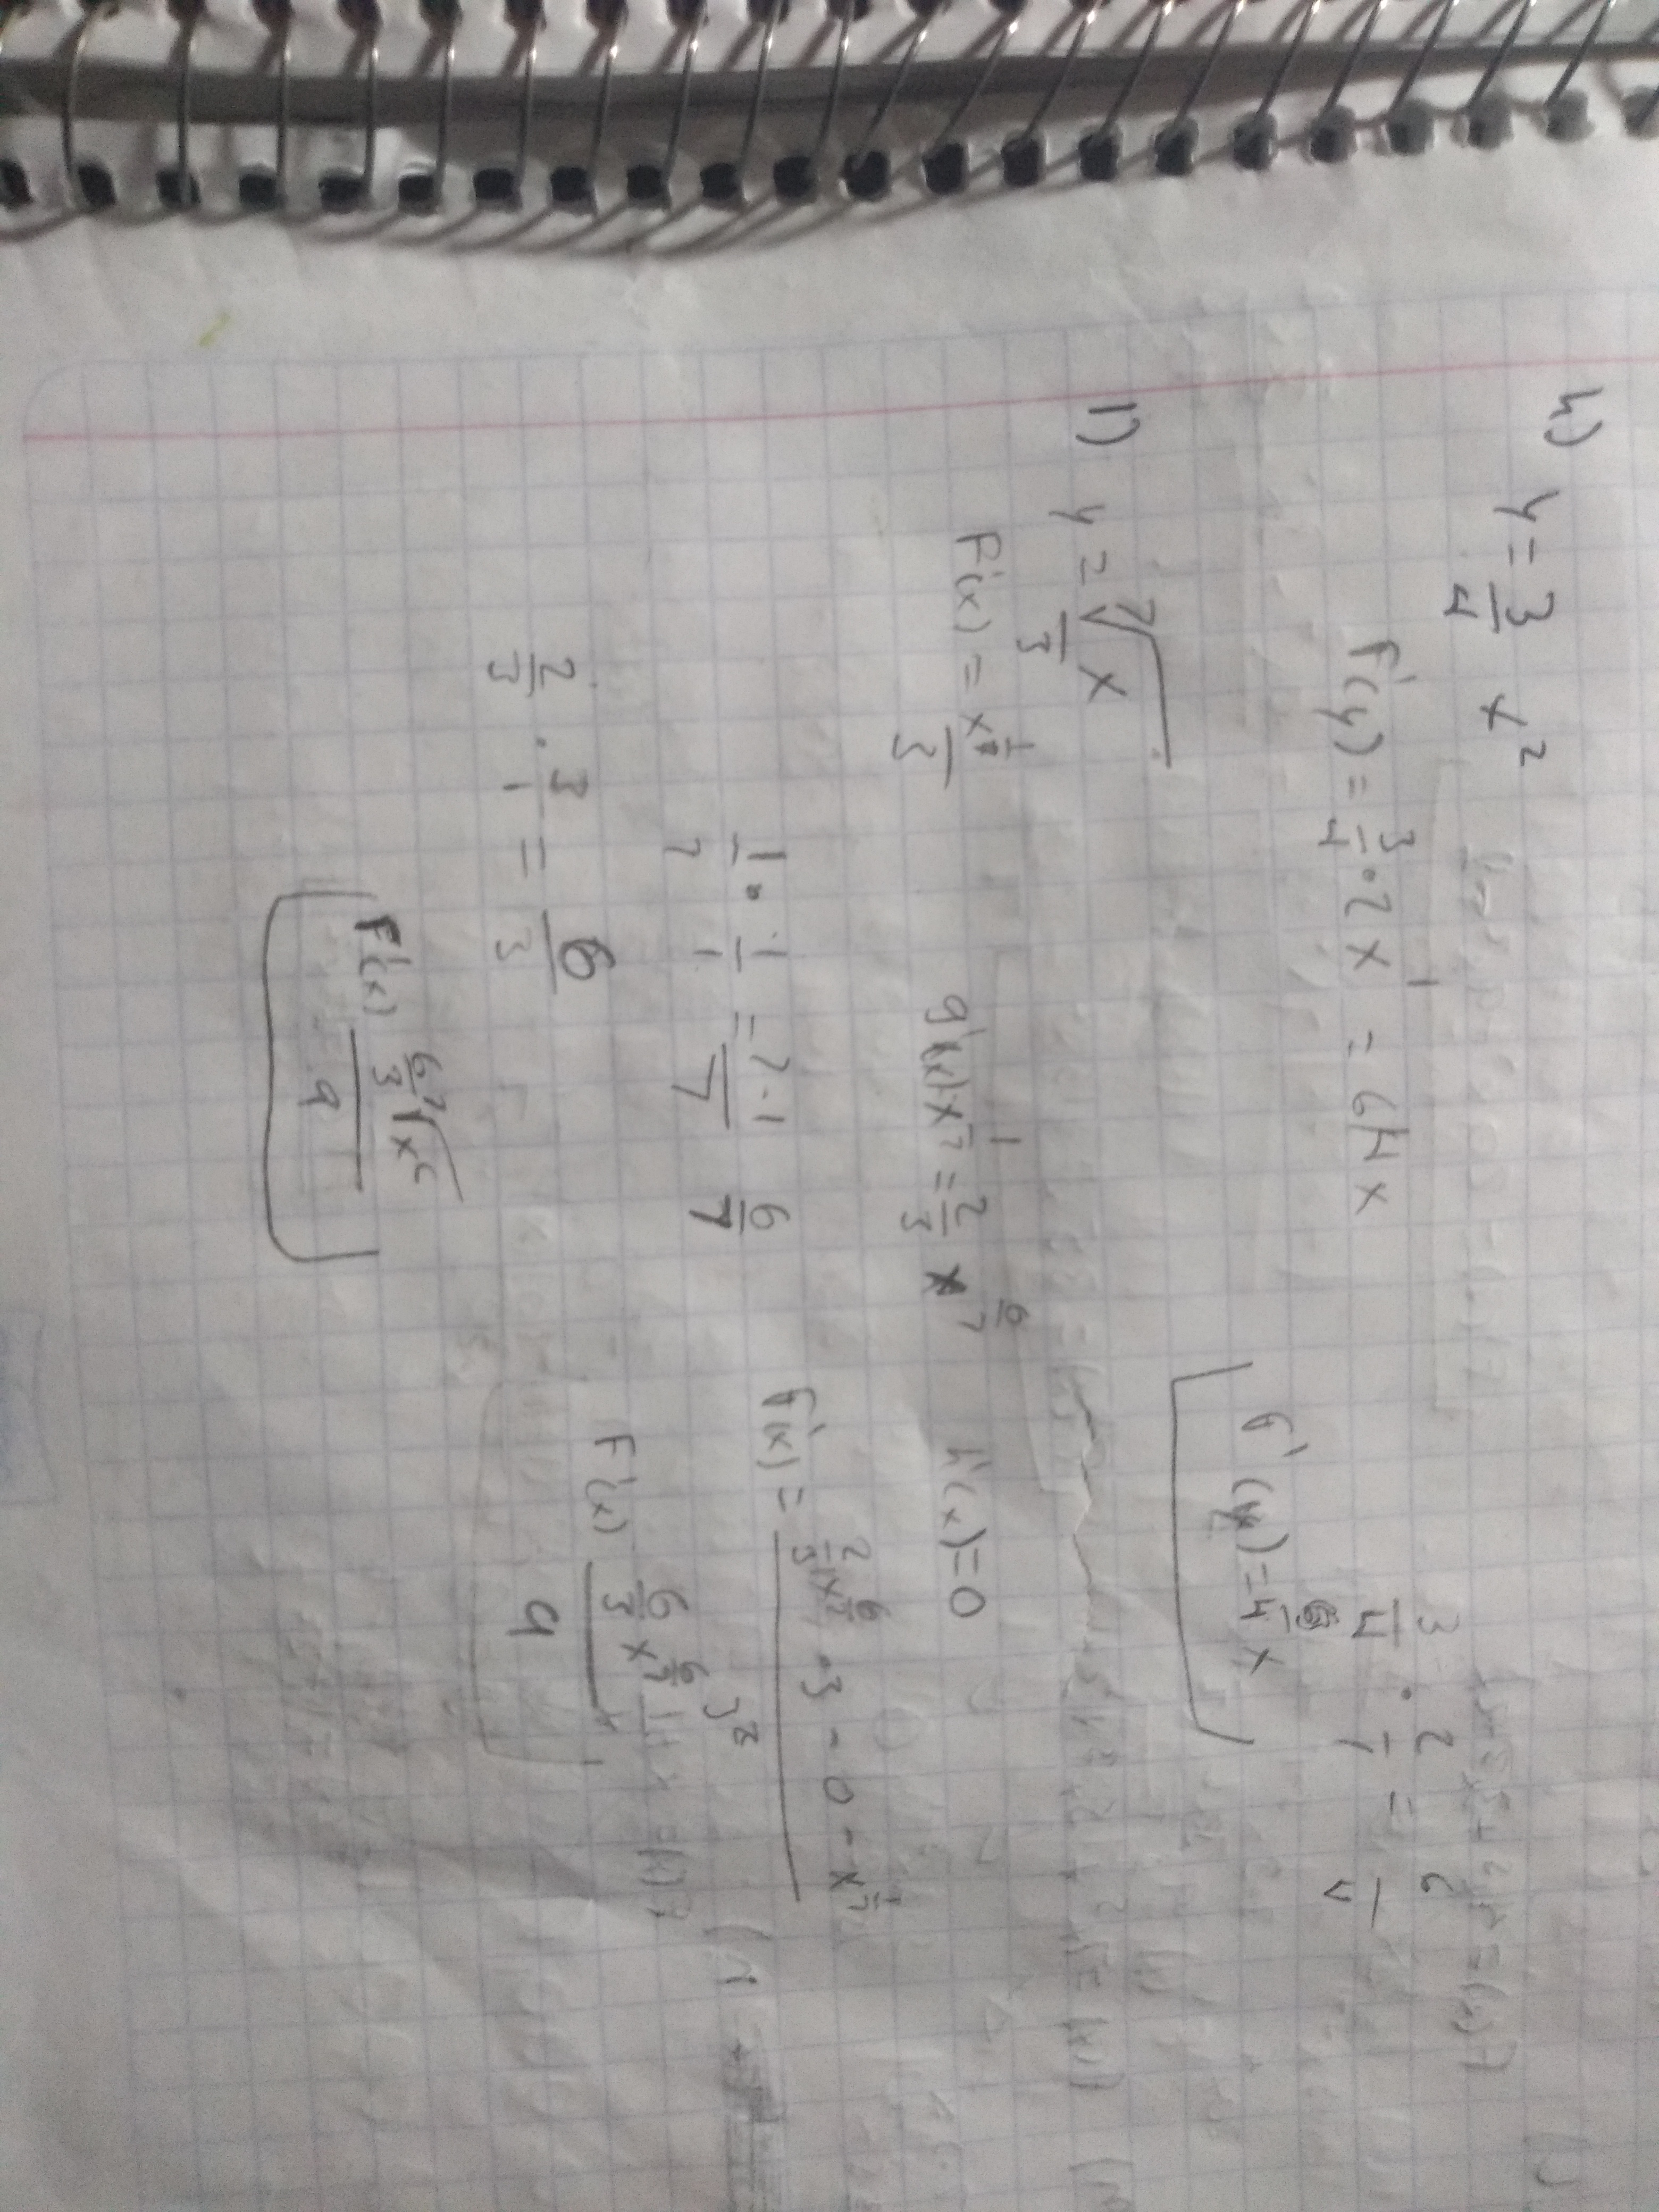 h) y = 3/4 x²
F'(y) = 3/4 · 2x¹ = 64x
3/4 · 2/1 =
F'(x) = 6/4 x
1) y = ⁷√x / 3
F(x) = x^(1/7) / 3
g'(x) x^(1/7) = 2/3 x^(6/7)
h'(x) = 0
1/7 · 1/1 = 7·1 / 7 6/7
F'(x) = 2/3 x^(6/7) · 3 - 0 - x^(1/7) / 3²
2/3 · 3/1 = 6/3
F'(x) 6/3 x^(6/7) / 9
F'(x) 6/3 ⁷√x⁶ / 9